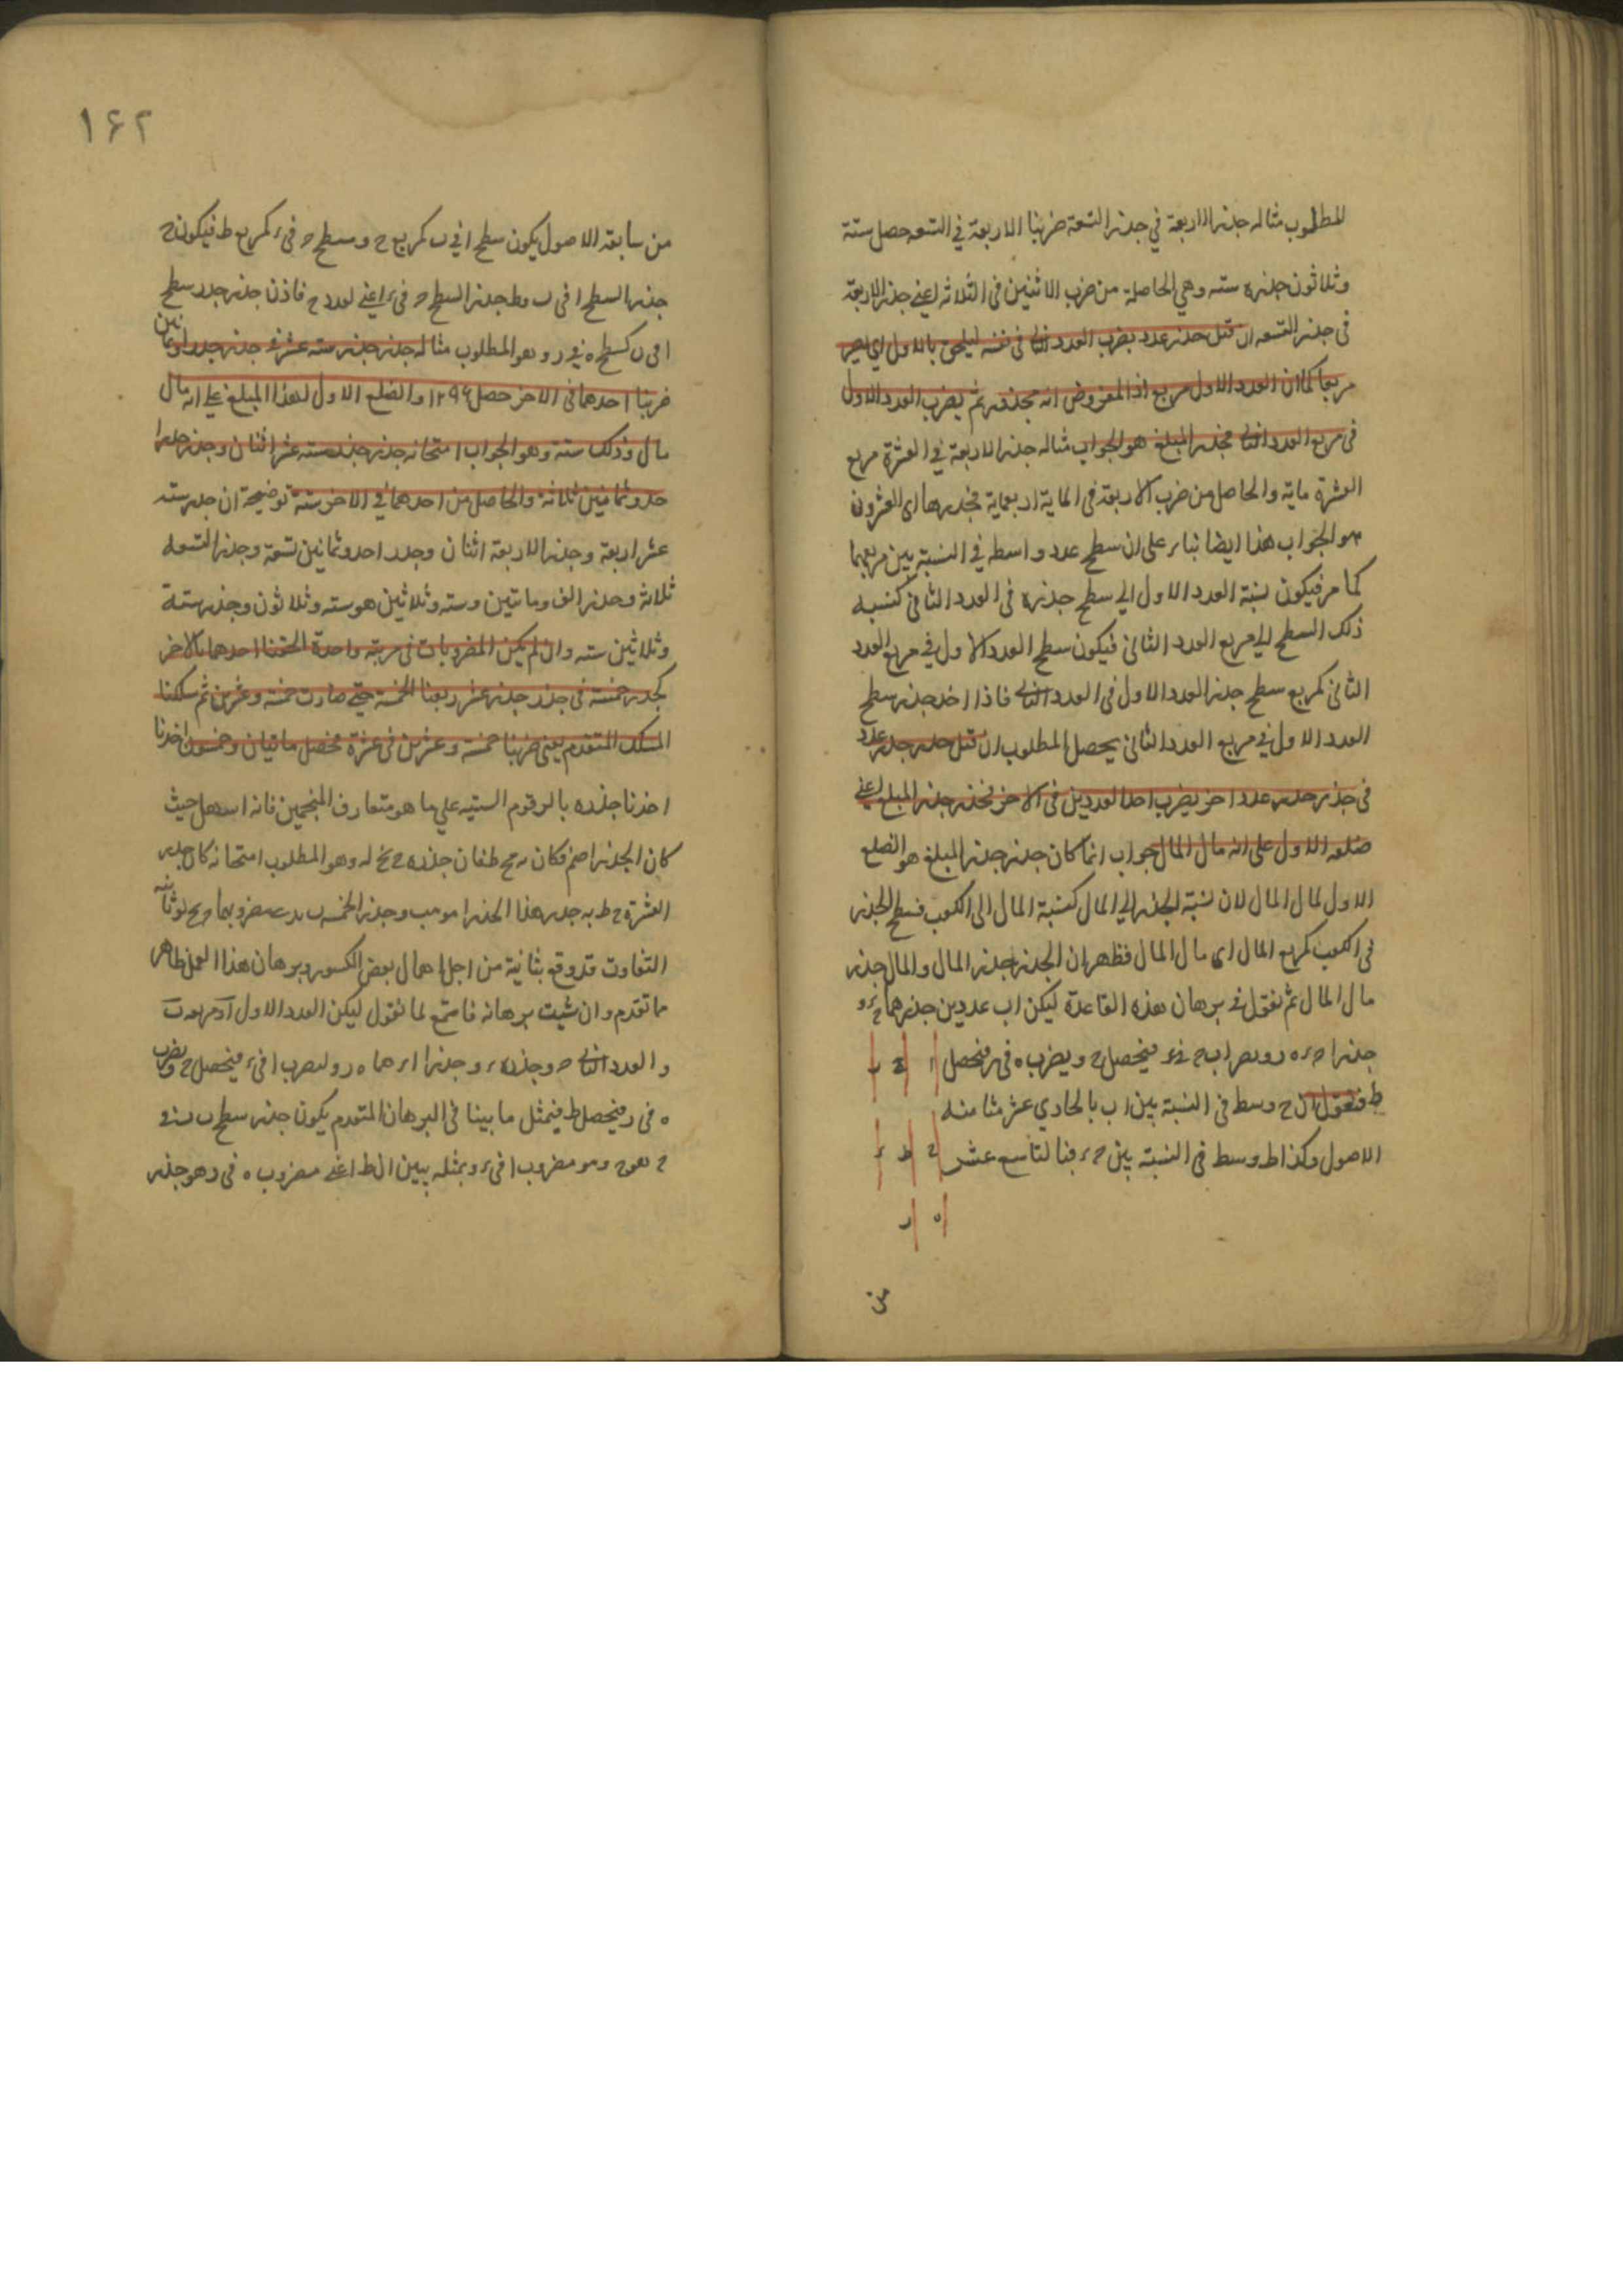 المطلوب مثاله جذر الاربعة في جذر التسعة ضربنا الاربعة في التسعه حصل ستة
وثلاثون جذره سته وهي الحاصلة من ضرب الاثنين في الثلاثه اعني جذر الاربعة
في جذر التسعه ان قيل جذر عدد يضرب العدد الثاني في نفسه ليلحق بالاول اي يصير
مربعا كما ان العدد الاول مربع اذا المفروض انه مجذور ثم يضرب العدد الاول
في مربع العدد الثاني فجذر المبلغ هو الجواب مثاله جذر الاربعة في العشرة مربع
العشرة ماية والحاصل من ضرب الاربعة في الماية اربعماية فجذرها اى العشرون
هو الجواب هذا ايضا بناء على ان سطح عدد واسطه في النسبة بين مربعيهما
كما مر فيكون نسبة العدد الاول الي سطح جذره في العدد الثاني كنسبه
ذلك السطح الي مربع العدد الثاني فيكون سطح العدد الاول في مربع العدد
الثاني كمربع سطح جذر العدد الاول في العدد الثاني فاذا اخذ جذر سطح
العدد الاول في مربع العدد الثاني يحصل المطلوب ان قيل جذر جذر عدد
في جذر جذر عدد اخر يضرب احد العددين في الاخر فجذر جذر المبلغ اعني
ضلعه الاول على انه مال المال جواب انما كان جذر جذر المبلغ هو الضلع
الاول لمال المال لان نسبة الجذر الي المال كنسبة المال الى الكعب فسطح الجذر
في الكعب كمربع المال اى مال المال فظهر ان الجذر جذر المال والمال جذر
مال المال ثم نقول في برهان هذه القاعدة ليكن اب عددين جذرهما
جذرا ه ر فيحصل ح ويضرب ه في ر فيحصل
ط فنقول ان ح وسط في النسبة بين اب بالحادي عشر مثا منه
الاصول وكذا ط وسط في النسبة بين ح ء فبالتاسع عشر
ا ح ب
ح ط ء
ه ر
من
١٦٢
من سابعة الاصول يكون سطح ا في ب كمربع ح وسطح ح في ء كمربع ط فيكون ح
جذر السطح ا في ب وط جذر السطح ح في ء اعني لعدد ح فاذن جذر جذر سطح
ا في ب كسطح ه في ر وهو المطلوب مثاله جذر جذر سته عشر في جذر جذر احد وثمانين
ضربنا احدهما في الاخر حصل ١٢٩٦ والضلع الاول لهذا المبلغ علي انه مال
مال وذلك ستة وهو الجواب امتحانه جذر جذر سته عشر اثنان وجذر جذر ا
حد وثمانين ثلاثة والحاصل من احدهما في الاخر ستة توضيحه ان جذر سته
عشر اربعة وجذر الاربعة اثنان وجذر احد وثمانين تسعة وجذر التسعه
ثلاثة وجذر الف وماتين وسته وثلاثين هو سته وثلاثون وجذر ستة
وثلاثين سته وان لم يكن المضروبات في مرتبة واحدة الحقنا احدهما بالاخر
كجذر خمسة في جذر جذر عشر ربعنا الخمسة حتي صارت خمسة وعشرين ثم سلكنا
المسلك المتقدم يعني ضربنا خمسة وعشرين في عشرة فحصل ماتيان وخمسون اخذنا
اخذنا جذره بالرقوم الستيه علي ما هو متعارف المنجمين فانه اسهل حيث
كان الجذر اصم فكان جذره وهو المطلوب امتحانه كان جذر
العشرة جذر هذا الجذر وجذر الخمسه مضروبهما
التفاوت قد وقع بثانية من اجل اهمال بعض الكسور وبرهان هذا العمل ظاهر
ما تقدم وان شيت برهانه فاستمع لما نقول ليكن العدد الاول ا
والعدد الثاني ح وجذره ء وجذر ا ه ر وليضرب ا في ء فيحصل ح ويضرب
ه في ر فيحصل ط فيمثل ما بينا في البرهان المتقدم يكون جذر سطح
ح وهو مضروب ا في ء وبمثله يبين ان ط اعني مضروب ه في ر هو جذر